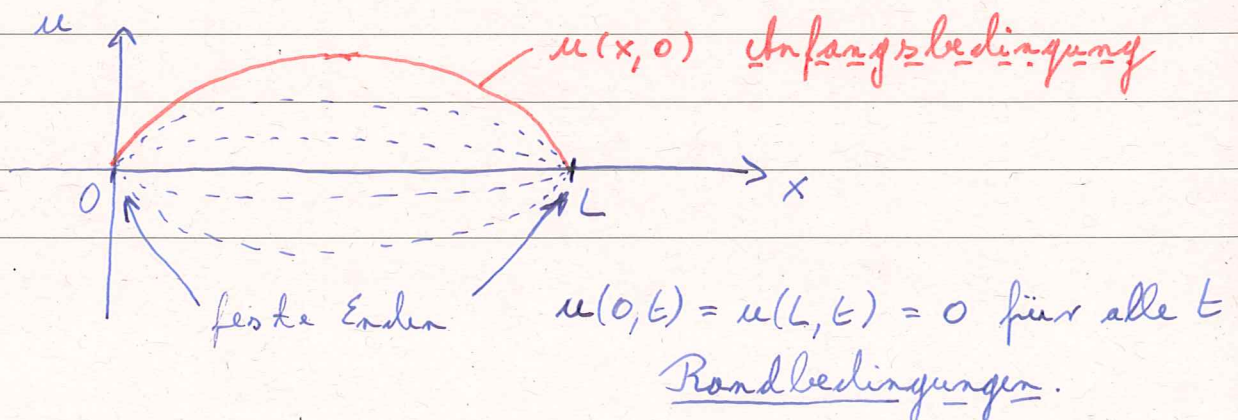 u
u(x,0) Anfangsbedingung
0
L
x
feste Enden
u(0,t) = u(L,t) = 0 für alle t
Randbedingungen.